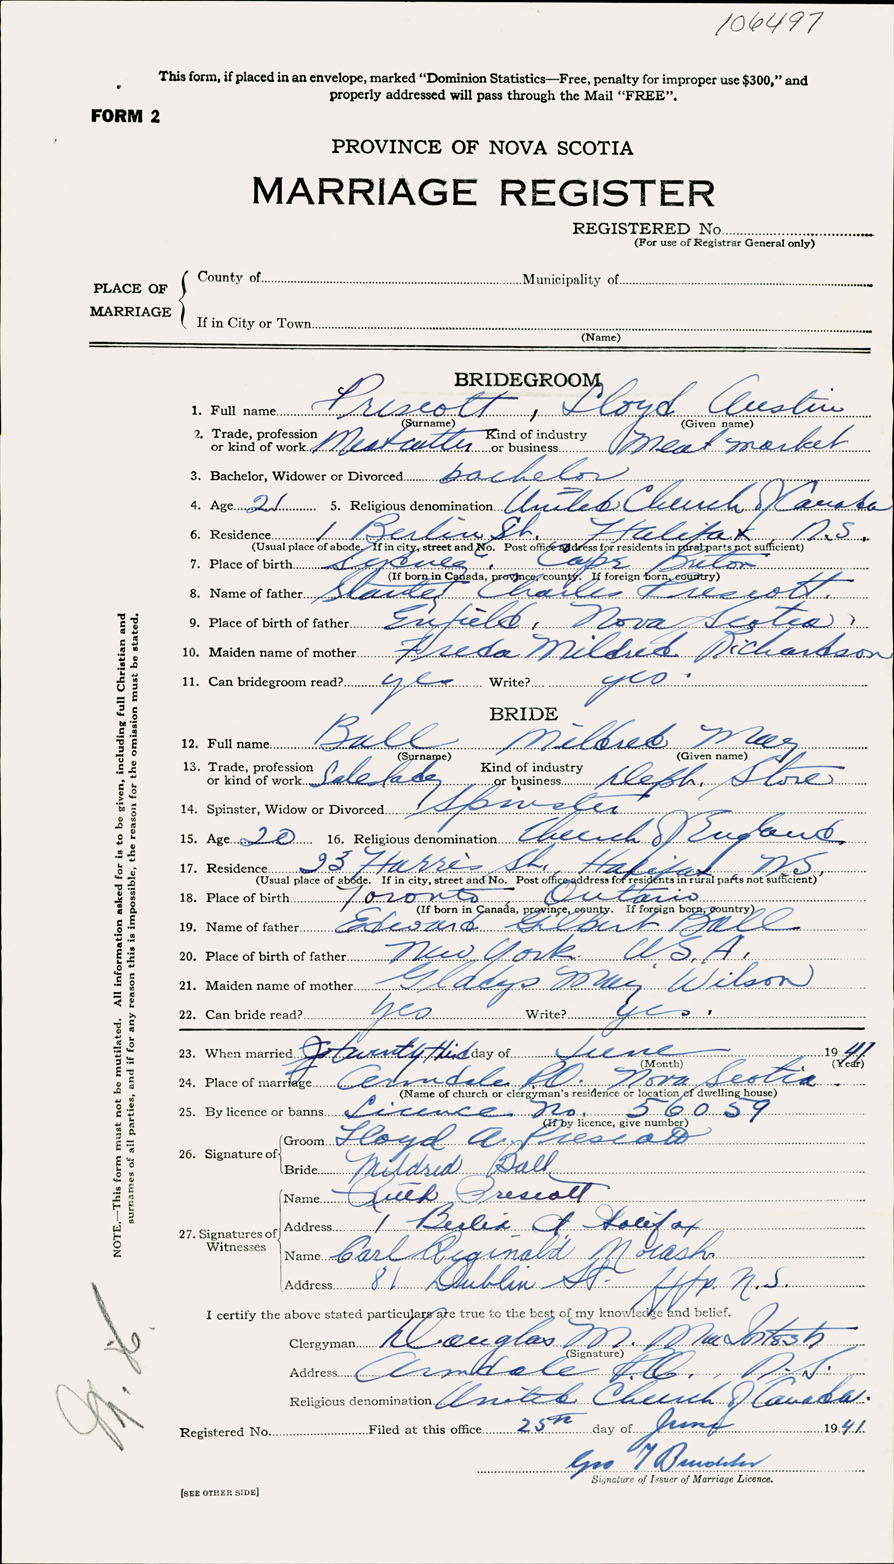 106497
This form, if placed in an envelope, marked "Dominion Statistics—Free, penalty for improper use $300," and
properly addressed will pass through the Mail "FREE".
FORM 2
PROVINCE OF NOVA SCOTIA
MARRIAGE REGISTER
REGISTERED No.
(For use of Registrar General only)
PLACE OF MARRIAGE
County of Municipality of
If in City or Town
(Name)
BRIDEGROOM
1. Full name Prescott, Lloyd Austin
(Surname) (Given name)
2. Trade, profession or kind of work Meatcutter Kind of industry or business Meat market
3. Bachelor, Widower or Divorced bachelor
4. Age 21 5. Religious denomination United Church of Canada
6. Residence 1 Berlin St. Halifax, N.S.
(Usual place of abode. If in city, street and No. Post office address for residents in rural parts not sufficient)
7. Place of birth Sydney, Cape Breton
(If born in Canada, province, county. If foreign born, country)
8. Name of father Charles Prescott.
9. Place of birth of father Enfield, Nova Scotia
10. Maiden name of mother Freda Mildred Richardson
11. Can bridegroom read? yes Write? yes.
BRIDE
12. Full name Ball Mildred May
(Surname) (Given name)
13. Trade, profession or kind of work Saleslady Kind of industry or business Deph. Store
14. Spinster, Widow or Divorced Spinster
15. Age 20 16. Religious denomination Church of England
17. Residence 23 Harris St. Halifax, N.S.
(Usual place of abode. If in city, street and No. Post office address for residents in rural parts not sufficient)
18. Place of birth Toronto, Ontario
(If born in Canada, province, county. If foreign born, country)
19. Name of father Edward Gilbert Ball
20. Place of birth of father New York U.S.A.
21. Maiden name of mother Gladys May Wilson
22. Can bride read? yes Write? yes.
23. When married twenty third day of June 1941
(Month) (Year)
24. Place of marriage Armdale P.O. Nova Scotia.
(Name of church or clergyman's residence or location of dwelling house)
25. By licence or banns Licence No. 56059
(If by licence, give number)
26. Signature of
Groom Lloyd A. Prescott
Bride Mildred Ball
27. Signatures of Witnesses
Name Ruth Prescott
Address 1 Berlin St Halifax
Name Carl Reginald Morash
Address 81 Dublin St. Hfx. N.S.
I certify the above stated particulars are true to the best of my knowledge and belief.
Clergyman Douglas M. MacIntosh
(Signature)
Address Armdale P.O., N.S.
Religious denomination United Church of Canada.
Registered No. Filed at this office 25th day of June 1941.
Geo T
Signature of Issuer of Marriage Licence.
[SEE OTHER SIDE]
NOTE.—This form must not be mutilated. All information asked for is to be given, including full Christian and
surnames of all parties, and if for any reason this is impossible, the reason for the omission must be stated.